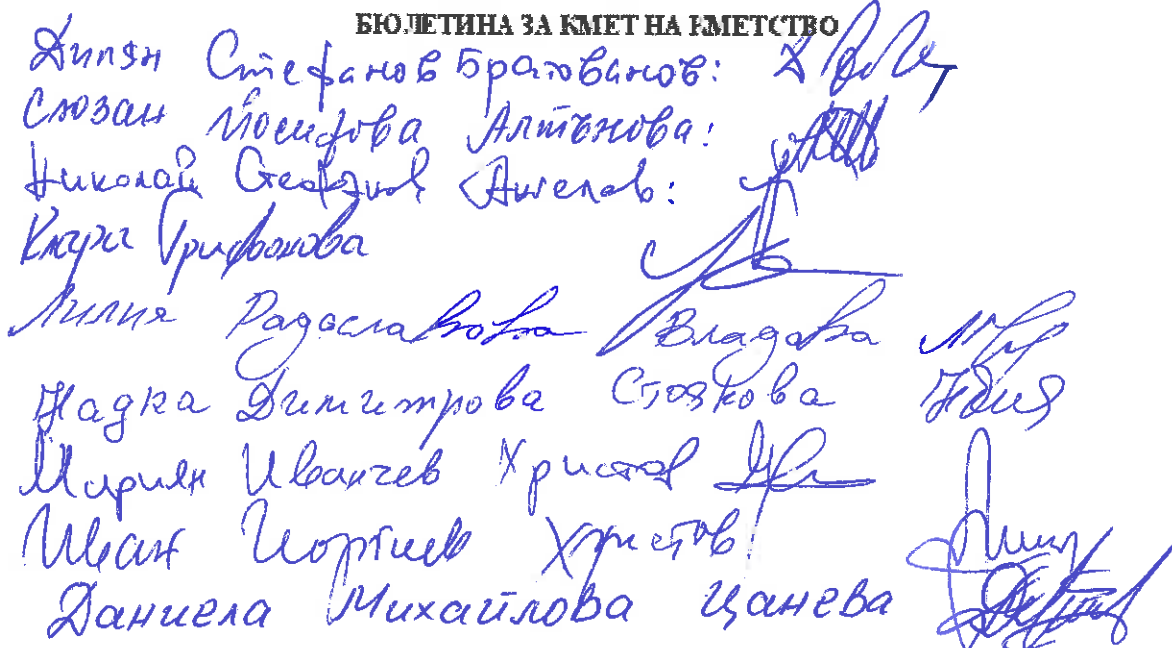 БЮЛЕТИНА ЗА КМЕТ НА КМЕТСТВО
Диян Стефанов Братованов:
Сюзан Йосифова Алтънова:
Николай Стефанов Ангелов:
Трифонова
Лилия Радославова Владова
Надка Димитрова Стоякова
Мариян Иванчев Христов
Иван Христов
Даниела Михайлова Цанева